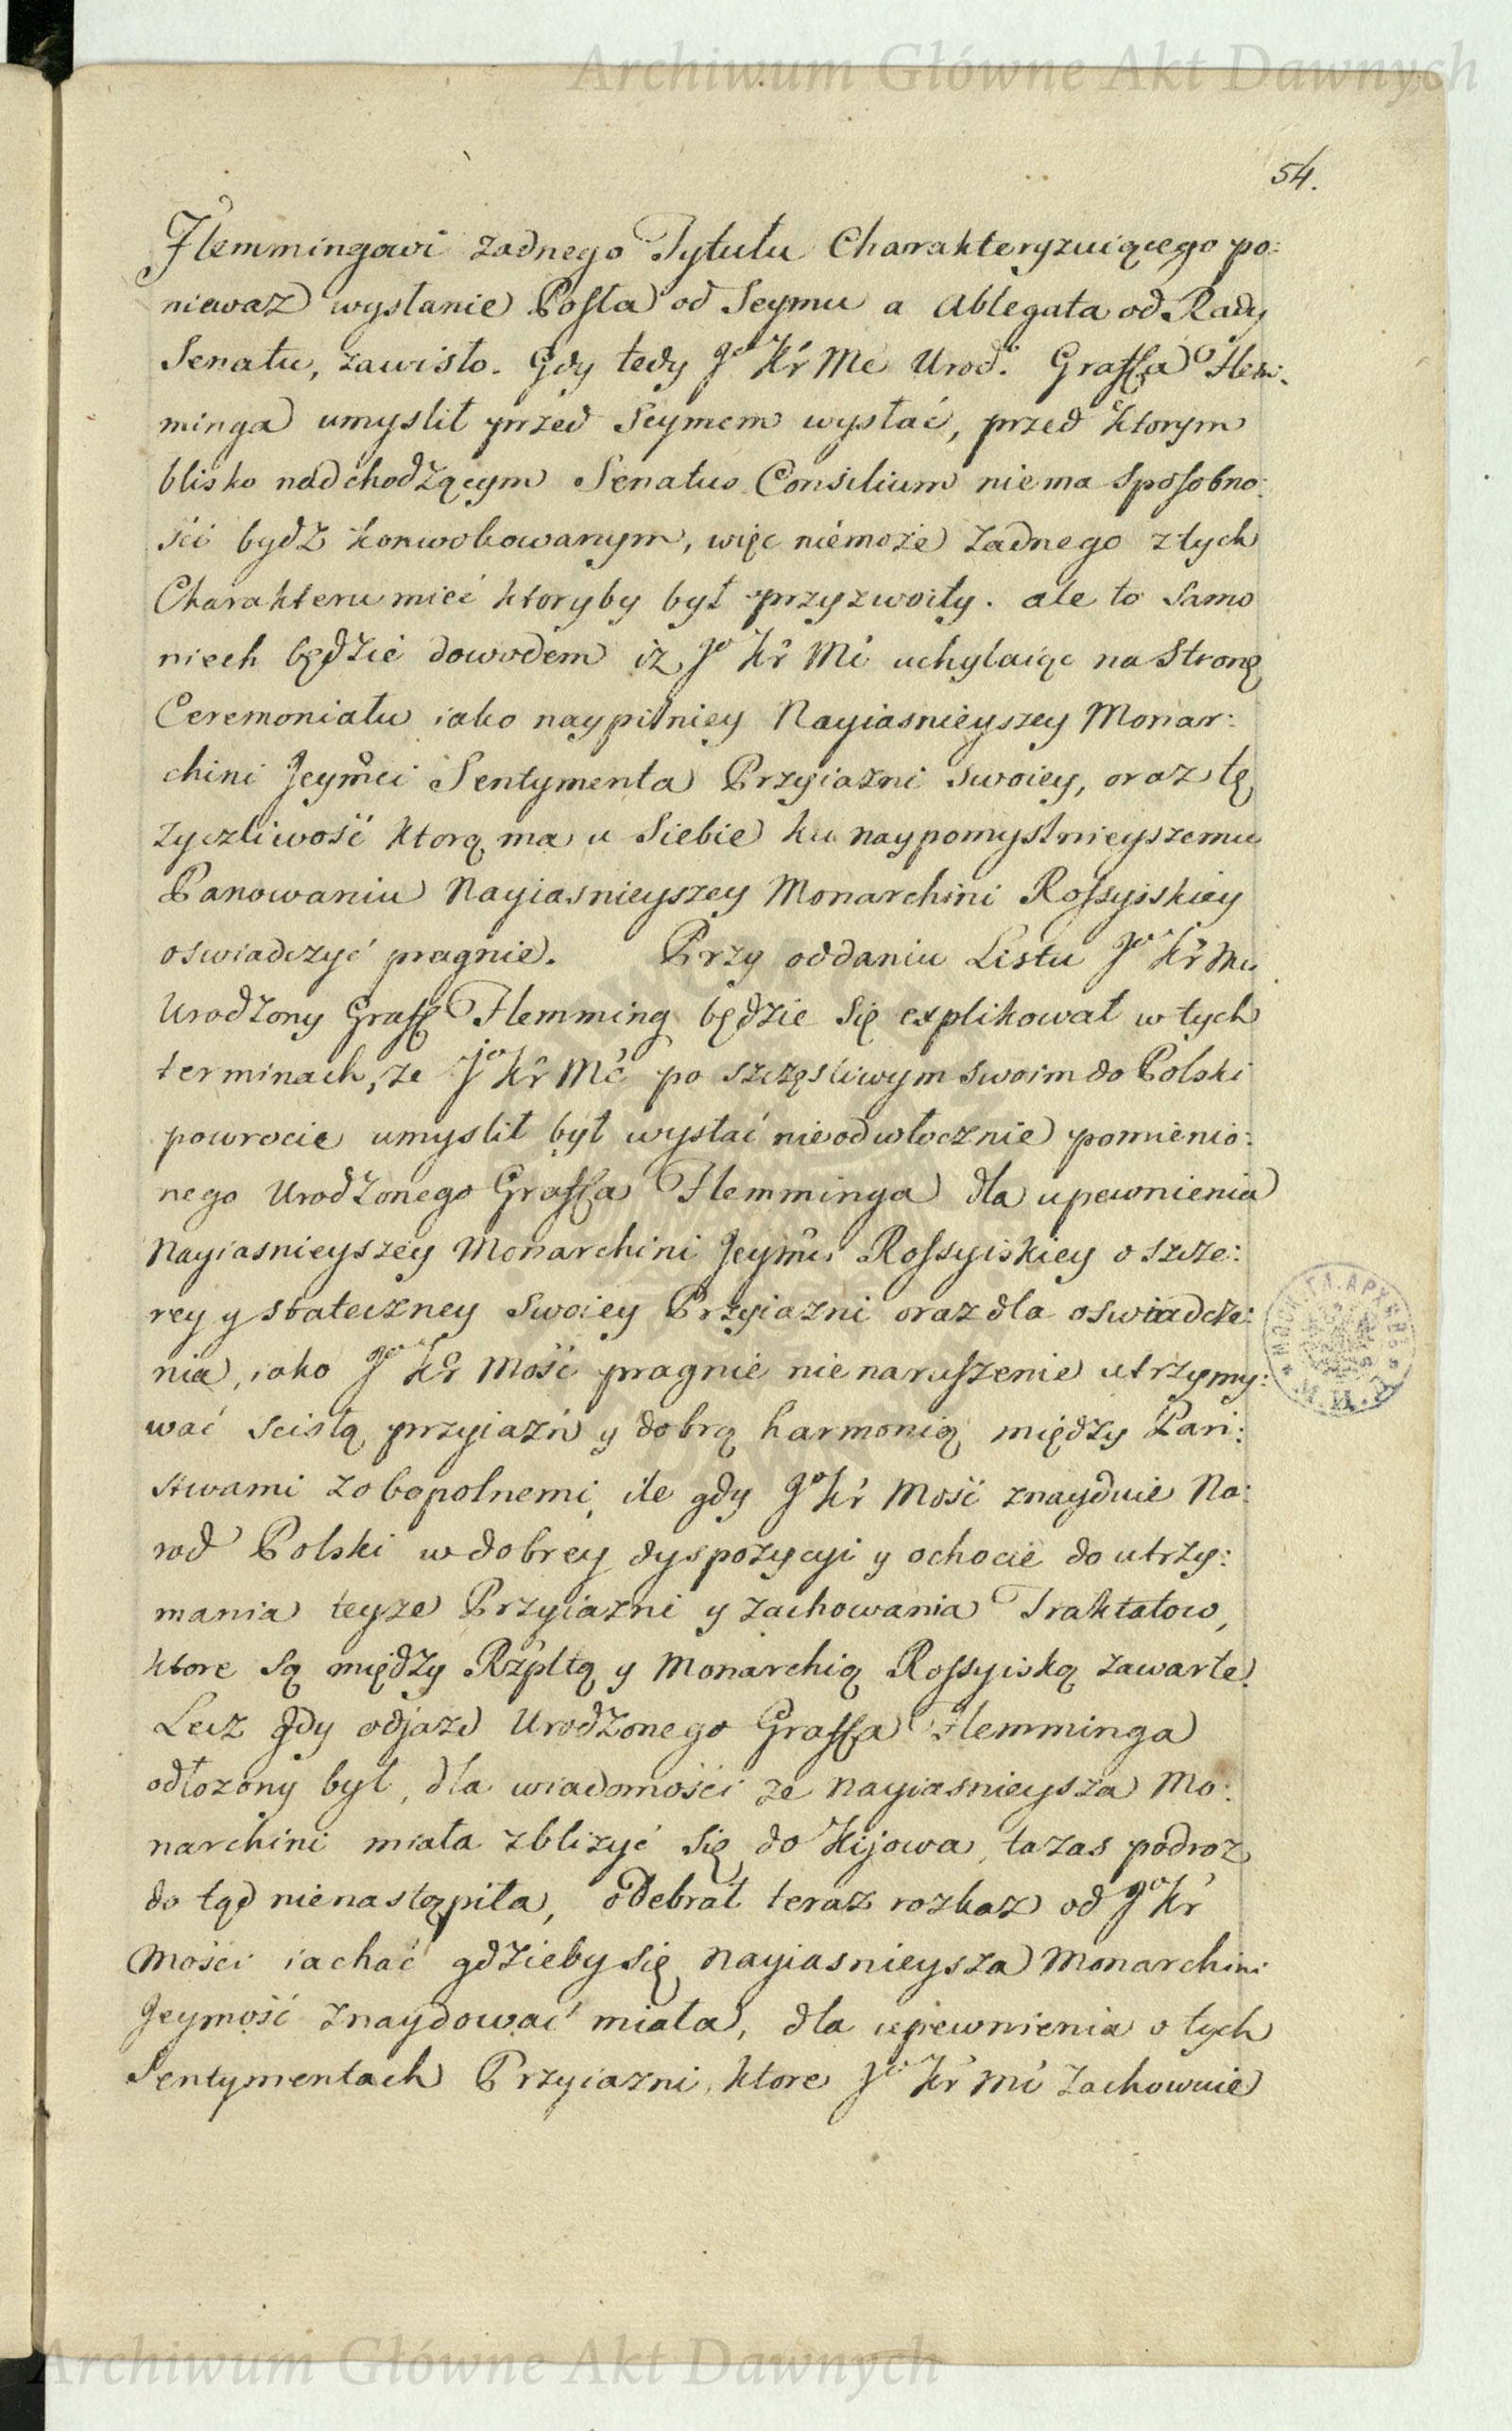 Archiwum Główne Akt Dawnych
54.
Flemmingowi zadnego Tytułu Charakteryzuiącego po:
niewaz wysłanie Posła od Seymu a Ablegata od Rady
Senatu, zawisło. Gdy tedy Jo Kr Mć Urod: Graffa Flem:
minga umyslił przed Seymem wysłać, przed ktorym
blisko nadchodzącym Senatus Consilium niema sposobno:
ści bydz konwokowanym, więc niemoże zadnego z tych
Charakteru mieć ktoryby był przyzwoity. ale to samo
niech będzie dowodem iz Jo Kr Mć uchylaiąc na Stronę
Ceremoniału iako naypilniey Nayiasnieyszey Monar:
chini Jeymci Sentymenta Przyiazni swoiey, oraz tę
zyczliwość ktorą ma u Siebie ku naypomyslnieyszemu
Panowaniu Nayiasnieyszey Monarchini Rossyiskiey
oswiadczyć pragnie. Przy oddaniu Listu Jo Kr Mci
Urodzony Graff Flemming będzie Się explikował w tych
terminach, ze Jo Kr Mć po szczęsliwym swoim do Polski
powrocie umyslił był wysłać nieodwłocznie pomienio:
nego Urodzonego Graffa Flemminga dla upewnienia
Nayiasnieyszey Monarchini Jeymci Rossyiskiey o szcze:
rey y stateczney Swoiey Przyiazni oraz dla oswiadcze:
nia, iako Jo Kr Mość pragnie nienaruszenie utrzymy:
wać scisłą przyiazń y dobrą harmonią między Pań:
stwami zobopolnemi, ile gdy Jo Kr Mość znayduie Na:
rod Polski w dobrey dyspozycyi y ochocie do utrzy:
mania teyze Przyiazni y zachowania Traktatow,
ktore są między Rzpltą y Monarchią Rossyiską zawarte.
Lecz gdy odjazd Urodzonego Graffa Flemminga
odłozony był, dla wiadomości ze Nayiasnieysza Mo:
narchini miała zblizyć Się do Kijowa, ta zas podroz
do tąd nienastąpiła, odebrał teraz rozkaz od Jo Kr
Mości iachać gdzieby się Nayiasnieysza Monarchini
Jeymość znaydować miała, dla upewnienia o tych
Sentymentach Przyiazni, ktore Jo Kr Mć Zachowuie
Archiwum Główne Akt Dawnych